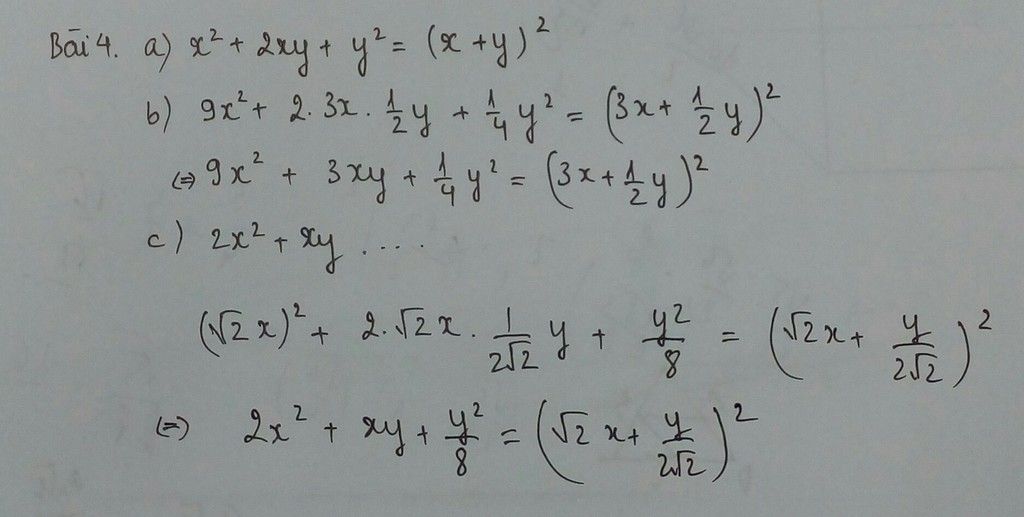 Bài 4. a) x² + 2xy + y² = (x + y)²
b) 9x² + 2. 3x . 1/2 y + 1/4 y² = (3x + 1/2 y)²
(=) 9x² + 3xy + 1/4 y² = (3x + 1/2 y)²
c) 2x² + xy ....
(√2 x)² + 2.√2x . 1/(2√2) y + y²/8 = (√2x + y/(2√2))²
(=) 2x² + xy + y²/8 = (√2 x + y/(2√2))²